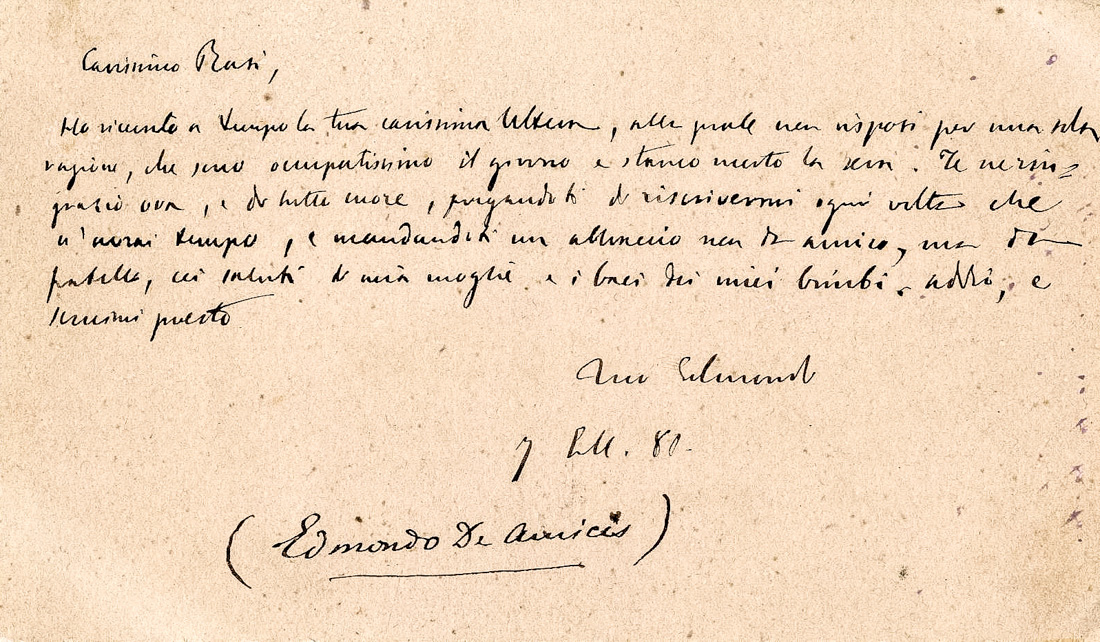 Carissimo Rasi,
Ho ricevuto a tempo la tua carissima lettera, alla quale non risposi per una sola
ragione, che sono occupatissimo il giorno e stanco morto la sera. Te ne rin-
grazio ora, e di tutto cuore, pregandoti di riscrivermi ogni volta che
n'avrai tempo, e mandandoti un abbraccio non da amico, ma da
fratello, coi saluti di mia moglie e i baci dei miei bimbi. addio, e
scrivimi presto
Tuo Edmondo
7 80.
(Edmondo De Amicis)